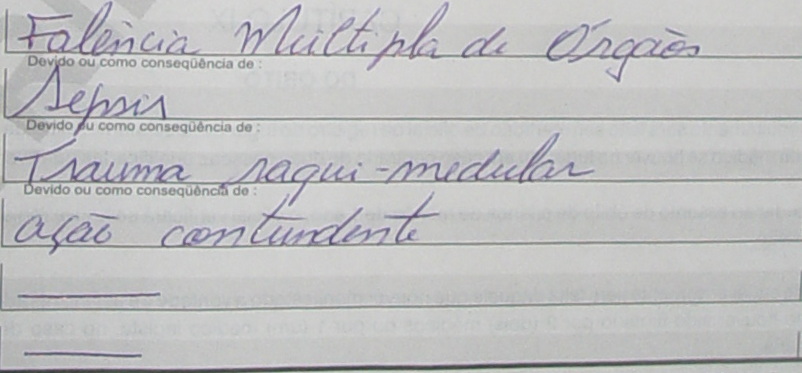 Falência Múltipla de Órgãos
Devido ou como conseqüência de :
Sepsis
Devido ou como conseqüência de :
Trauma raqui-medular
Devido ou como conseqüência de :
ação contundente